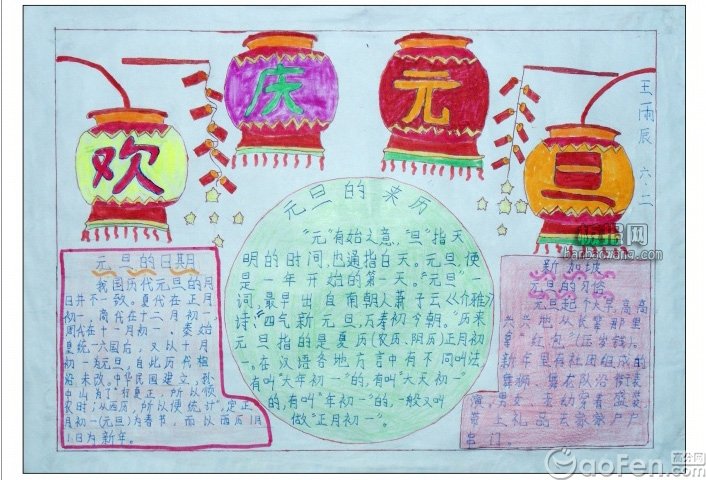 欢
庆
元
旦
王雨辰 六.二
元旦的日期
我国历代元旦的月
日并不一致。夏代在正月
初一，商代在十二月初一，
周代在十一月初一，秦始
皇统一六国后，又以十月
初一为元旦，自此历代相
沿未改。中华民国建立，孙
中山为了“行夏正，所以顺
农时；从西历，所以便统计”，定正
月初一(元旦)为春节，而以西历1月
1日为新年。
元旦的来历
“元”有始之意，“旦”指天
明的时间，也通指白天。元旦便
是一年开始的第一天。“元旦”一
词，最早出自南朝人萧子云《介雅》
诗：“四气新元旦，万寿初今朝。”历来
元旦指的是夏历(农历、阴历)正月初
一。在汉语各地方言中有不同叫法，
有叫“大年初一”的，有叫“大天初一”
的，有叫“年初一”的，一般又叫
做“正月初一”。
新加坡
元旦的习俗
元旦起个大早，高高
兴兴地从长辈那里
拿“红包”(压岁钱)。
新年里有社团组成的
舞狮、舞龙队沿街表
演，男女老幼穿着盛装
带上礼品去亲家户户
串门。
报网
hanbaowang.com
高分网
GaoFen.com